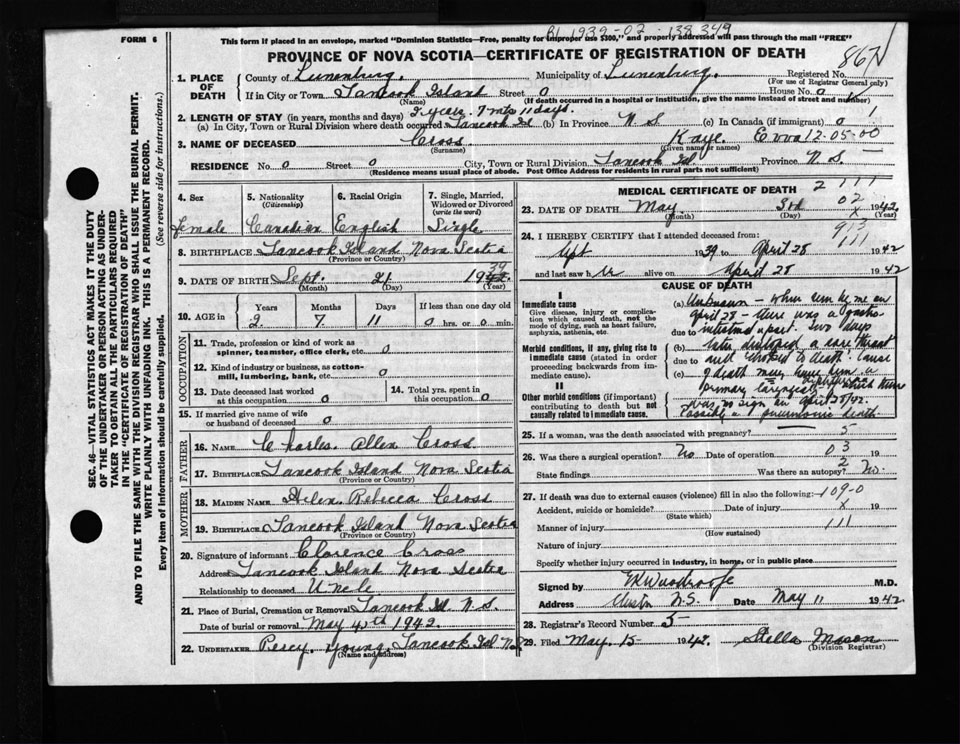 FORM 6
This form if placed in an envelope, marked "Dominion Statistics—Free, penalty for improper use $300," and properly addressed will pass through the mail "FREE"
PROVINCE OF NOVA SCOTIA—CERTIFICATE OF REGISTRATION OF DEATH
1. PLACE OF DEATH County of Lunenburg. Municipality of Lunenburg. Registered No.
(For use of Registrar General only)
If in City or Town Tancook Island Street 0 House No. 0
(Name) (If death occurred in a hospital or institution, give the name instead of street and number)
2. LENGTH OF STAY (in years, months and days) 2 years. 7 mts 11 days.
(a) In City, Town or Rural Division where death occurred Tancook Isl (b) In Province N.S (c) In Canada (if immigrant) 0
3. NAME OF DECEASED Cross Kaye. Evva 12-05-00
(Surname) (Given name or names)
RESIDENCE No. 0 Street 0 City, Town or Rural Division Tancook Isl. Province N.S.
(Residence means usual place of abode. Post Office Address for residents in rural parts not sufficient)
4. Sex 5. Nationality (Citizenship) 6. Racial Origin 7. Single, Married, Widowed or Divorced (write the word)
Female Canadian English Single
8. BIRTHPLACE Tancook Island Nova Scotia
(Province or Country)
9. DATE OF BIRTH Sept. 21 1939
(Month) (Day) (Year)
10. AGE Years Months Days If less than one day old
2. 7. 11 0 hrs. or 0 min.
OCCUPATION
11. Trade, profession or kind of work as spinner, teamster, office clerk, etc. 0
12. Kind of industry or business, as cotton-mill, lumbering, bank, etc. 0
13. Date deceased last worked at this occupation 0 14. Total yrs. spent in this occupation 0
15. If married give name of wife or husband of deceased 0
FATHER
16. NAME Charles Allen Cross
17. BIRTHPLACE Tancook Island Nova Scotia
(Province or Country)
MOTHER
18. MAIDEN NAME Helen Rebecca Cross
19. BIRTHPLACE Tancook Island Nova Scotia
(Province or Country)
20. Signature of informant Clarence Cross
Address Tancook Island Nova Scotia
Relationship to deceased Uncle
21. Place of Burial, Cremation or Removal Tancook Isl N.S.
Date of burial or removal May 4th 1942.
22. UNDERTAKER Percy Young. Tancook Isl N.S
(Name and address)
MEDICAL CERTIFICATE OF DEATH
23. DATE OF DEATH May 3rd 1942.
(Month) (Day) (Year)
24. I HEREBY CERTIFY that I attended deceased from:
Sept 1939 to April 28 1942
and last saw alive on April 28 1942
CAUSE OF DEATH
I
Immediate cause
Give disease, injury or complication which caused death, not the mode of dying, such as heart failure, asphyxia, asthenia, etc.
Morbid conditions, if any, giving rise to immediate cause (stated in order proceeding backwards from immediate cause).
II
Other morbid conditions (if important) contributing to death but not causally related to immediate cause.
(a) Unknown – when seen by me on
April 28 – there was a gastro-
due to intestinal upset. Two days
(b) later developed a sore throat
due to and choked to death. Cause
(c) of death may have been a
primary laryngeal diphtheria which there
was no sign on April 28/42.
Possibly a pneumonic death.
25. If a woman, was the death associated with pregnancy?
26. Was there a surgical operation? No Date of operation
State findings Was there an autopsy? No.
27. If death was due to external causes (violence) fill in also the following:
Accident, suicide or homicide? Date of injury 19
(State which)
Manner of injury
(How sustained)
Nature of injury
Specify whether injury occurred in industry, in home, or in public place
Signed by M.D.
Address Chester N.S. Date May 11 1942
28. Registrar's Record Number 5
29. Filed May 15 1942. Stella Mason
(Division Registrar)
SEC. 46—VITAL STATISTICS ACT MAKES IT THE DUTY
OF THE UNDERTAKER OR PERSON ACTING AS UNDER-
TAKER TO OBTAIN ALL THE PARTICULARS REQUIRED
IN THE "CERTIFICATE OF REGISTRATION OF DEATH"
AND TO FILE THE SAME WITH THE DIVISION REGISTRAR WHO SHALL ISSUE THE BURIAL PERMIT.
WRITE PLAINLY WITH UNFADING INK. THIS IS A PERMANENT RECORD.
Every item of information should be carefully supplied. (See reverse side for instructions.)